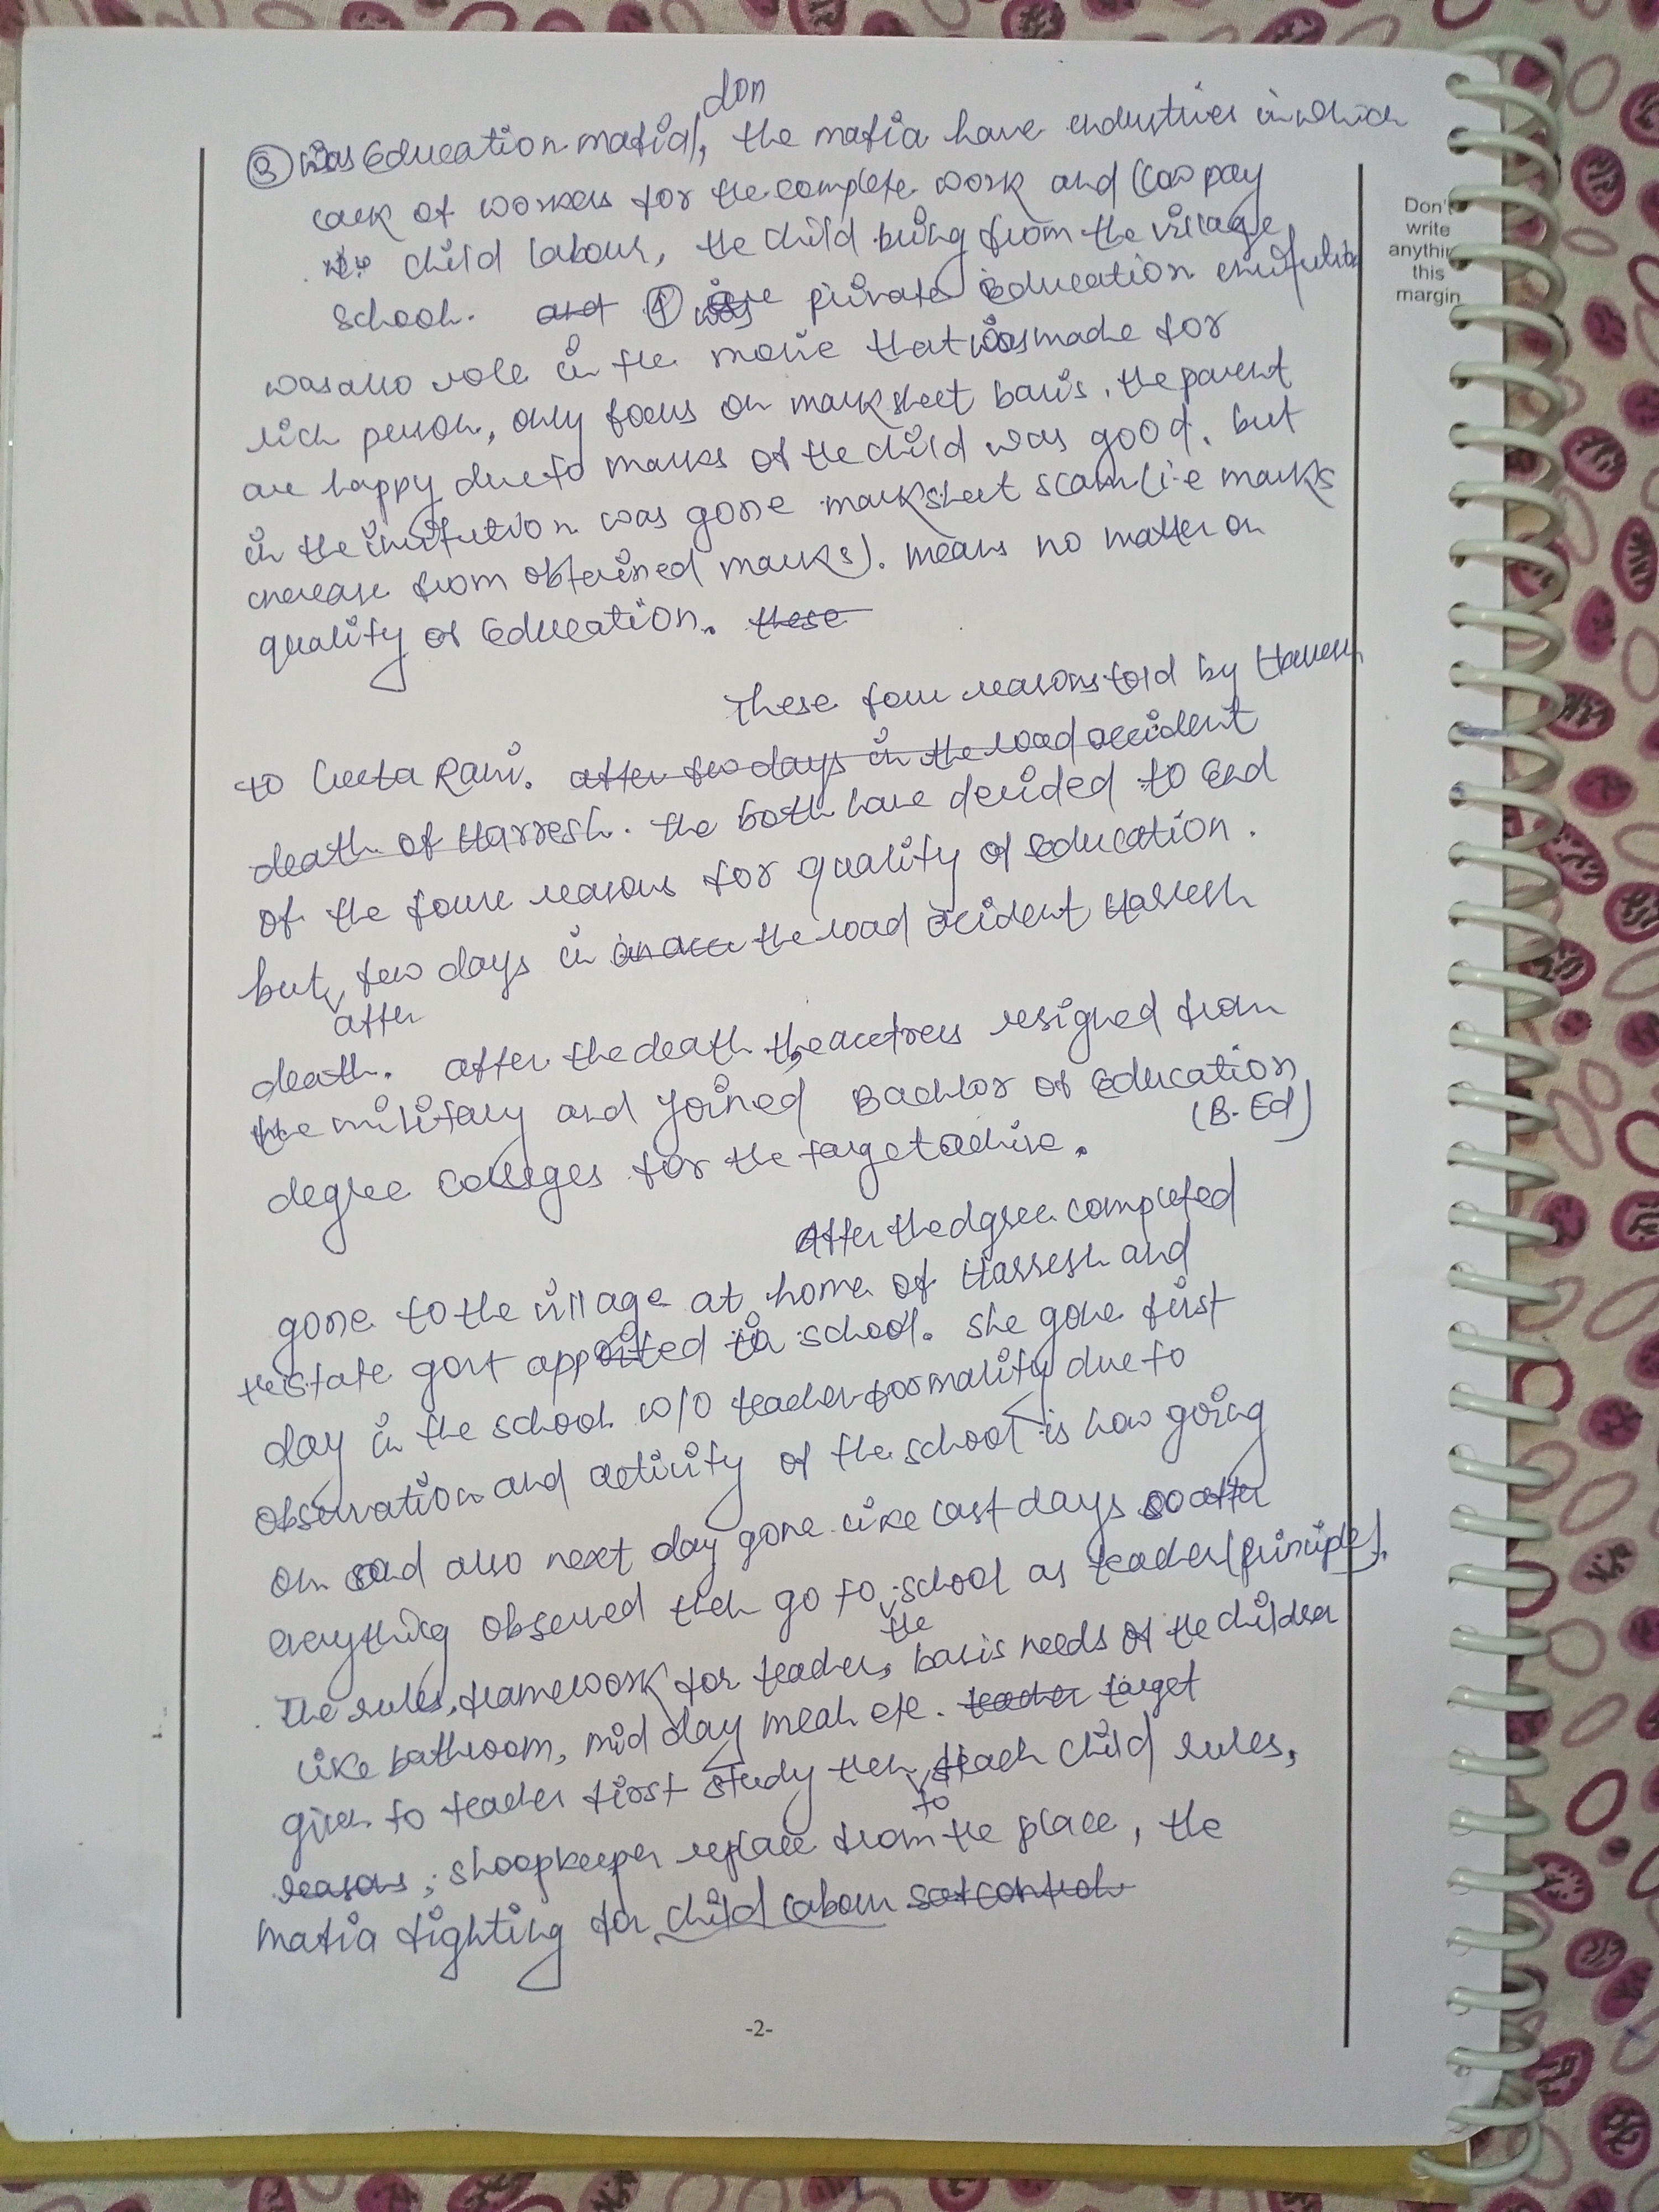 don
③ was Education mafia, the mafia have endustries in which
lack of workers for the complete work and low pay
child labour, the child bring from the village
school. and ④ was private Education
was also role in the movie that was made for
rich person, only focus on marksheet basis, the parent
are happy due to marks of the child was good. but
in the institution was gone marksheet scam (i.e marks
increase from obtained marks). means no matter on
quality of Education. these
These four reasons told by
to Geeta Rani. after two days in the road accident
death of Harresh. the both have decided to End
of the four reasons for quality of Education.
but few days in the road acident Harresh
after
death. after the death the acctress resigned from
the military and joined Bachlor of Education
(B.Ed)
degree colleges for the target achive.
After the dgree completed
gone to the village at home of Harresh and
the state govt appoited in school. she gone first
day in the school w/o teacher formality due to
observation and activity of the school is how going
on and also next day gone like last days so after
everything observed then go to school as teacher (principle).
the
The rules, framework for teacher, basis needs of the children
like bathroom, mid day meah etc. teacher target
given to teacher first study then teach child rules,
to
reasons; shoopkeeper replace from the place, the
mafia fighting for child labour
-2-
Don't
write
anythin
this
margin